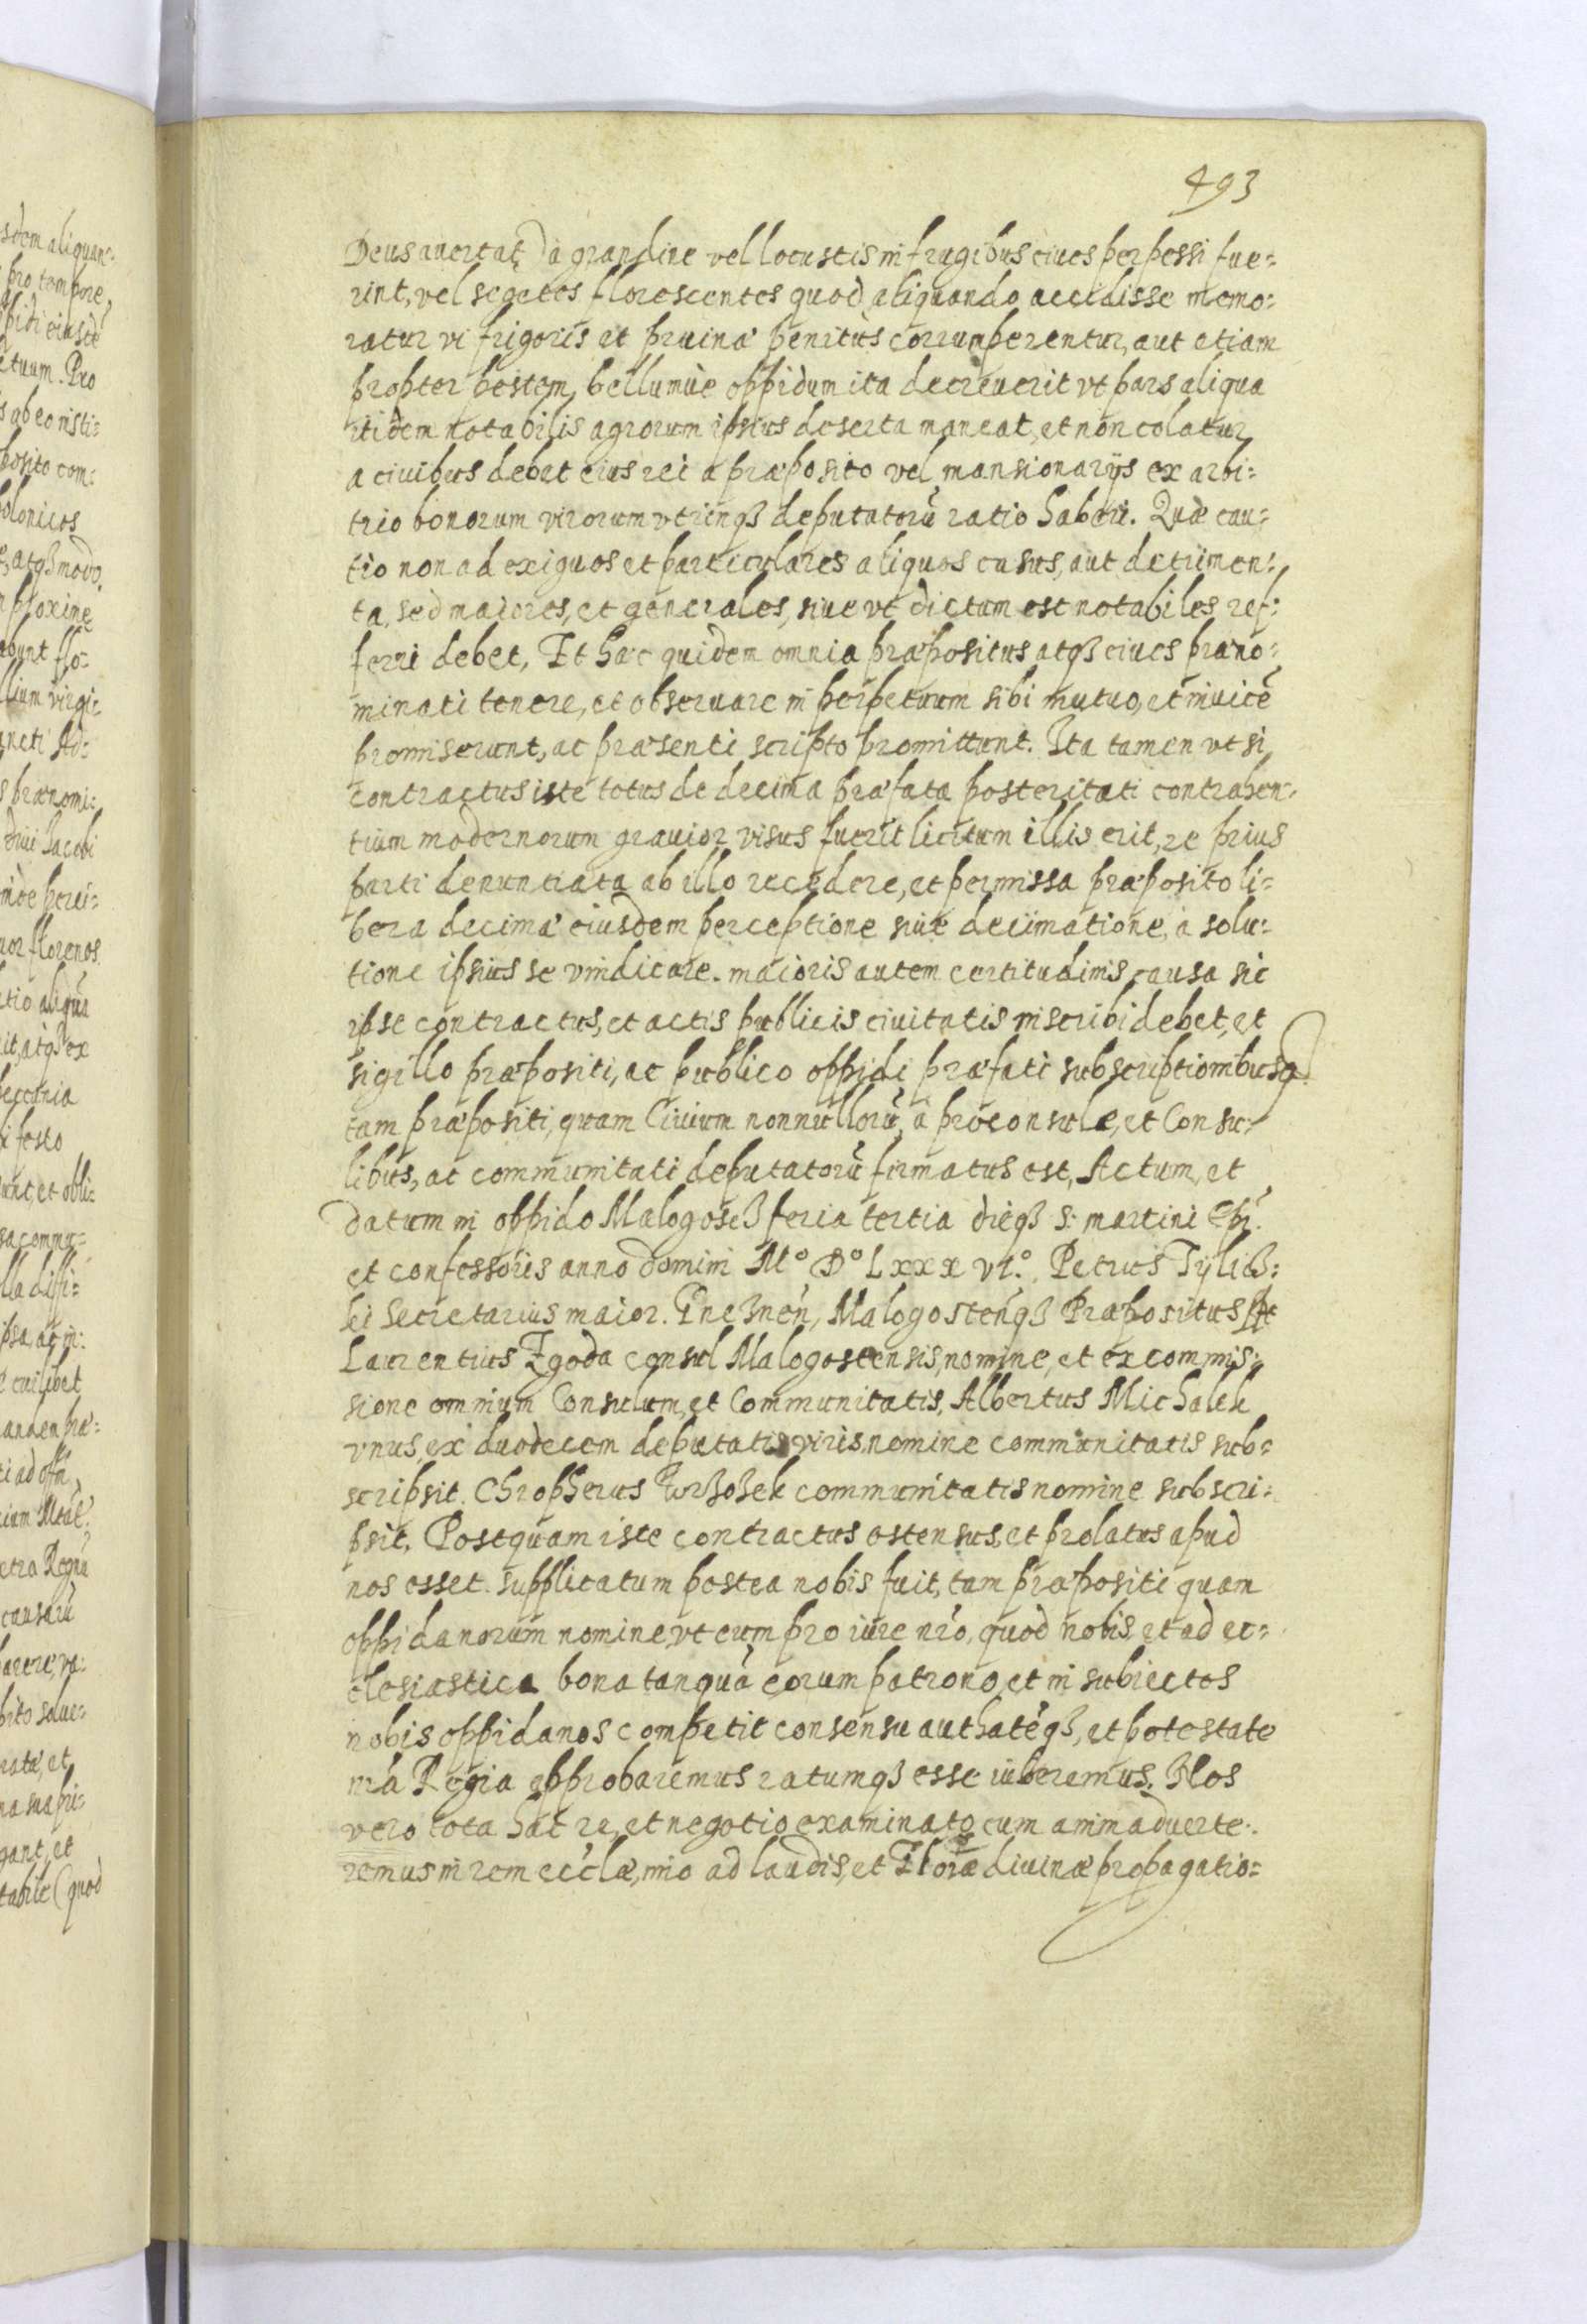 493
Deus avertat, à grandine vel locustis in frugibus cives perpessi fue=
rint, vel segetes florescentes quod aliquando accidisse memo=
ratur vi frigoris et pruinæ penitùs corrumperentur, aut etiam
propter pestem, bellumve oppidum ita decreverit vt pars aliqua
itidem notabilis agrorum ipsius deserta maneat, et non colatur
a civibus debet eius rei a præposito vel mansionarijs ex arbi=
trio bonorum virorum vtrinqʒ deputatorũ ratio haberi. Quæ cau=
tio non ad exiguos et particulares aliquos casus, aut detrimen=
ta, sed maiores, et generales, sive vt dictum est notabiles ref=
ferri debet, Et hæc quidem omnia præpositus atqʒ cives præno=
minati tenere, et observare in perpetuum sibi mutuo, et invicẽ
promiserunt, ac præsenti scripto promittunt. Ita tamen vt si
contractus iste totus de decima præfata posteritati contrahen=
tium modernorum gravior visus fuerit licitum illis erit, re prius
parti denuntiata ab illo recedere, et permissa præposito li=
bera decimæ eiusdem perceptione sive decimatione, à solu=
tione ipsius se vindicare. maioris autem certitudinis causa sic
ipse contractus, et actis publicis civitatis inscribi debet, et
sigillo præpositi, ac publico oppidi præfati subscriptionibusqʒ
tam præpositi, quam Civium nonnullorũ, à proconsule, et Consu=
libus, ac communitati deputatorũ firmatus est, Actum, et
datum in oppido Malogoscʒ feria tertia dieqʒ S. martini Epi.
et confessoris anno domini Mº Dº Lxxx vi.º, Petrus Tÿlicʒ=
ki Secretarius maior. Gneʒnen, Malogostenqʒ Præpositus sst
Laurentius Zgoda consul Malogostensis, nomine, et ex commis=
sione omnium Consulum, et Communitatis, Albertus Michalek
vnus, ex duodecem deputatis viris, nomine communitatis sub=
scripsit. Chropherus communitatis nomine subscri=
psit. Postquam iste contractus ostensus, et prolatus apud
nos esset. supplicatum postea nobis fuit, tam præpositi quam
oppidanorum nomine, vt eum pro iure nr̃o, quod nobis, et ad ec=
clesiastica bona tanquã eorum patrono, et in subiectos
nobis oppidanos competit consensu authatẽqʒ, et potestate
nr̃a Regia approbaremus ratumqʒ esse iuberemus. Nos
vero tota hac re, et negotio examinato cum animadverte=
remus in rem ecclæ, imo ad laudis, et Gloriæ divinæ propagatio=